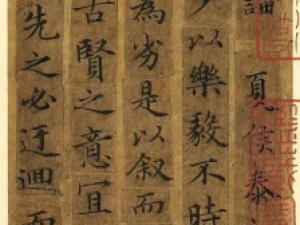 論 夏侯泰
多以樂毅不時
為劣是以叙而
古賢之意宜
先之必迂迴而